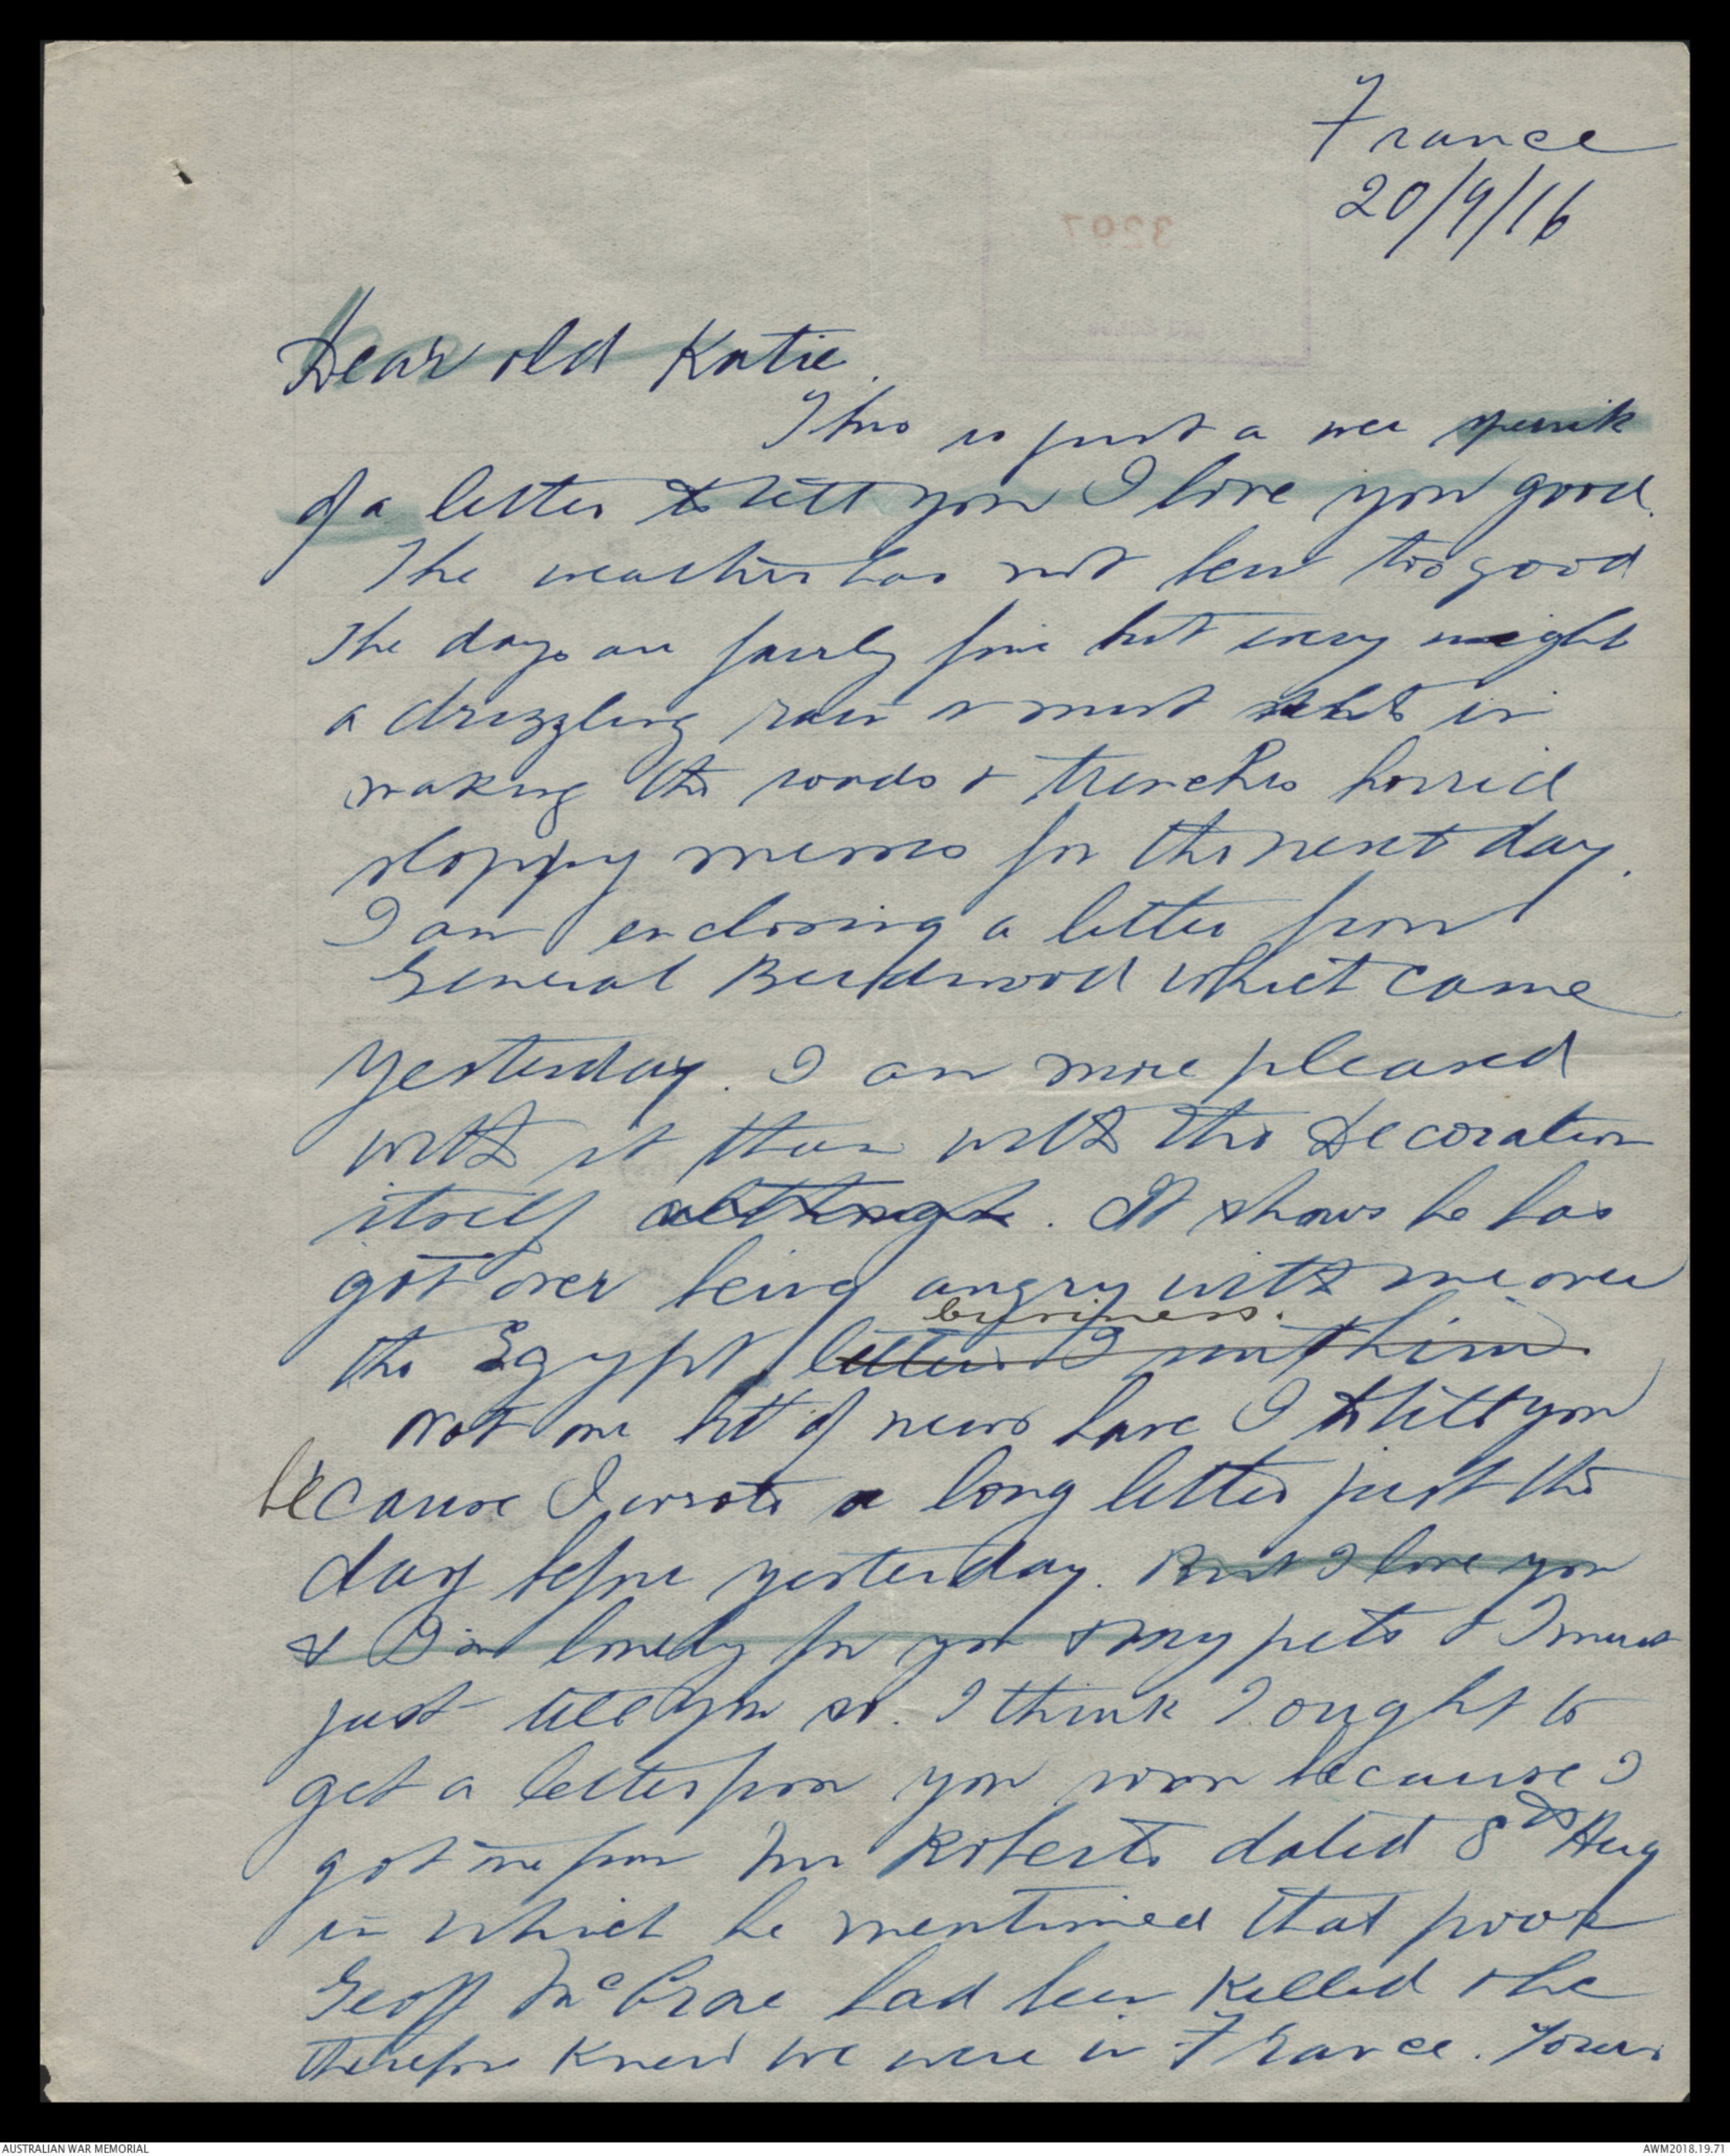 France
20/9/16
3297
Dear old Katie.
This is just a wee spunk
of a letter to tell you I love you good.
The weather has not been too good
The days are fairly fine but every night
a drizzling rain & mist sets in
making the roads & trenches horrid
sloppy messes for the next day.
I am enclosing a letter from
General Birdwood which came
yesterday. I am more pleased
with it than with the Decoration
itself although. It shows he has
got over being angry with me over
business.
the Egypt letter I sent him.
Not one bit of news have I to tell you
because I wrote a long letter just the
day before yesterday. But I love you
& I'm lonely for you & my pets & I must
just tell you so. I think I ought to
get a letter from you soon because I
got one from Mr Roberts dated 8th Aug
in which he mentioned that poor
Geoff McCrae had been killed & he
therefore knew we were in France. Yours
AUSTRALIAN WAR MEMORIAL
AWM2018.19.71